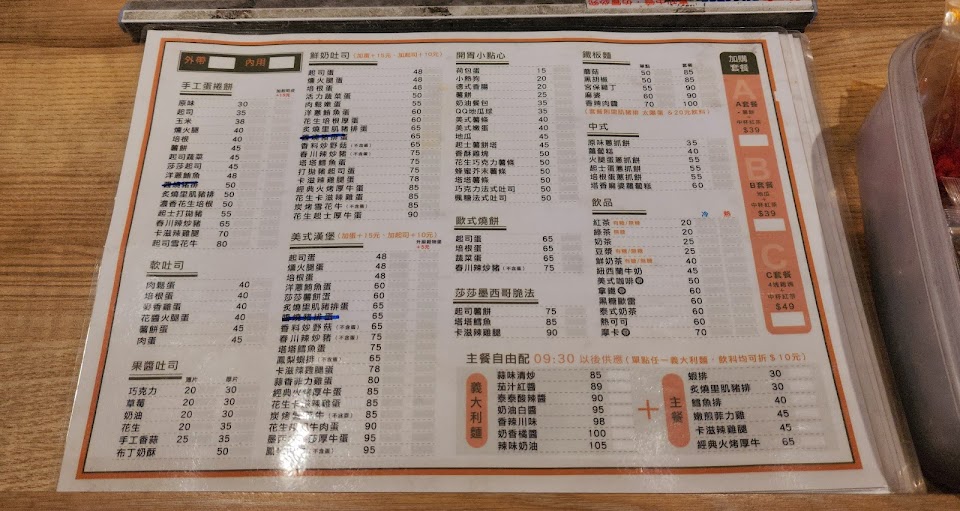 外帶 內用
手工蛋捲餅
原味 30
起司 35
玉米 38
燻火腿 40
培根 40
薯餅 40
起司蔬菜 45
莎莎起司 45
洋蔥鮪魚 50
醬燒豬排 50
炙燒里肌豬排 50
濃香花生培根 50
起士打拋豬 55
香川辣炒豬 65
卡滋辣雞腿 70
起司雪花牛 80
軟吐司
肉鬆蛋 40
培根蛋 40
彩香雞蛋 40
花醬火腿蛋 40
薯餅蛋 45
肉蛋 45
果醬吐司
薄片 厚片
巧克力 20 30
草莓 20 30
奶油 20 30
花生 20 30
手工香蒜 25 35
布丁奶酥 50
鮮奶吐司 (加蛋+15元．加起司+10元)
起司蛋 48
燻火腿蛋 48
培根蛋 48
活力蔬菜蛋 50
肉鬆嫩蛋 55
洋蔥鮪魚蛋 60
花生培根厚蛋 60
炙燒里肌豬排蛋 60
香料炒野菇 (不含蛋) 65
香川辣炒豬 (不含蛋) 70
塔塔鱈魚蛋 70
打拋豬起司蛋 75
卡滋辣雞腿蛋 75
經典火烤厚牛蛋 85
花生卡滋辣雞蛋 85
炭烤雪花牛 (不含蛋) 85
花生起士厚牛蛋 90
美式漢堡 (加蛋+15元．加起司+10元)
起司蛋 48
燻火腿蛋 48
培根蛋 48
洋蔥鮪魚蛋 60
莎莎薯餅蛋 60
炙燒里肌豬排蛋 65
醬燒豬排蛋 65
香料炒野菇 (不含蛋) 65
香川辣炒豬 (不含蛋) 75
塔塔鱈魚蛋 75
鳳梨蝦排 (不含蛋) 75
卡滋辣雞腿蛋 78
蒜香菲力雞蛋 80
經典火烤厚牛蛋 85
花生卡滋辣雞蛋 85
炭烤雪花牛 (不含蛋) 85
90
95
95
開胃小點心
荷包蛋 15
小熱狗 20
德式香腸 20
薯餅 25
奶油餐包 35
QQ地瓜球 35
美式薯條 40
美式嫩蛋 40
地瓜 45
起士薯餅塔 45
香酥雞塊 50
花生巧克力薯條 50
蜂蜜芥末薯條 50
塔塔薯條 50
巧克力法式吐司 50
楓糖法式吐司 50
歐式燒餅
起司蛋 65
培根蛋 65
蔬菜蛋 65
香川辣炒豬 (不含蛋) 75
莎莎墨西哥脆法
起司薯餅 75
塔塔鱈魚 85
卡滋辣雞腿 90
鐵板麵
單點 套餐
蘑菇 50 85
黑胡椒 50 85
宮保雞丁 55 90
麻婆 65 100
香辣肉醬 70 105
中式
原味蔥抓餅 30
蘿蔔糕 40
火腿蛋蔥抓餅 55
起士蛋蔥抓餅 55
培根蛋蔥抓餅 55
塔香麻婆蘿蔔糕 60
飲品 冷 熱
紅茶 20
綠茶 20
奶茶 25
豆漿 25
鮮奶茶 40
紐西蘭牛奶 45
美式咖啡 45
拿鐵 60
黑糖歐蕾 60
泰式奶茶 60
熱可可 60
摩卡 70
加購套餐
A
A套餐
+
中杯紅茶
$39
B
B套餐
地瓜
+
中杯紅茶
$39
C
C套餐
4塊雞塊
+
中杯紅茶
$49
主餐自由配 09:30 以後供應 (單點任一義大利麵，飲料均可折＄10元)
義大利麵
蒜味清炒 85
茄汁紅醬 89
泰泰酸辣醬 90
奶油白醬 95
香辣川味 98
奶香橘醬 100
辣味奶油 105
+
主餐
蝦排 30
炙燒里肌豬排 30
鱈魚排 40
嫩煎菲力雞 45
卡滋辣雞腿 45
經典火烤厚牛 65